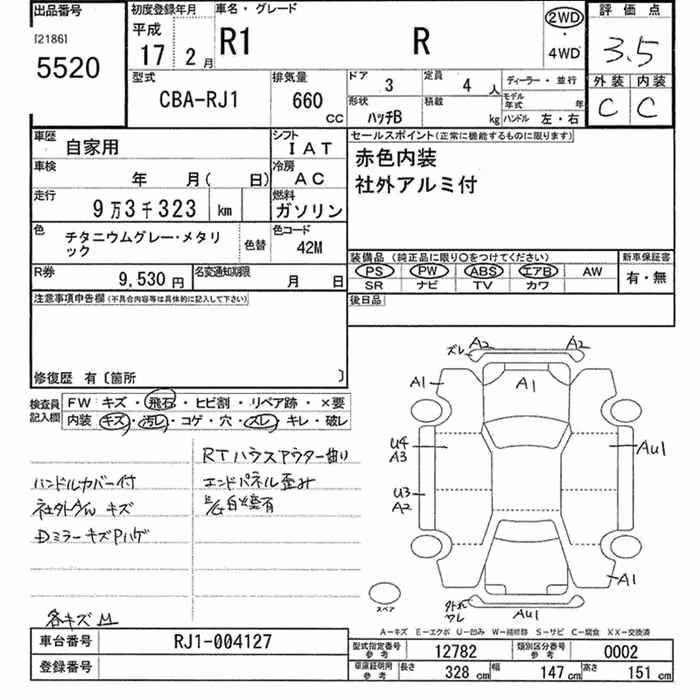 出品番号
[2186]
5520
初度登録年月
平成
17 2月
車名・グレード
R1 R
2WD
・
4WD
評価点
3.5
外装 内装
C C
型式
CBA-RJ1
排気量
660
CC
ドア 3
定員 4人
形状 ハッチB
積載 kg
ディーラー・並行
モデル年式 年
ハンドル 左・右
車歴 自家用
シフト IAT
車検 年 月( 日)
冷房 AC
走行 9万3千323 km
燃料 ガソリン
色 チタニウムグレー・メタリック
色替
色コード 42M
R券 9,530円
名変通知期限 月 日
セールスポイント(正常に機能するものに限ります)
赤色内装
社外アルミ付
装備品 (純正品に限り○をつけてください)
PS PW ABS エアB AW
SR ナビ TV カワ
新車保証書
有・無
後日品
注意事項申告欄(不具合内容等は具体的に記入して下さい)
修復歴 有〔箇所 〕
検査員記入欄
FW キズ・飛石・ヒビ割・リペア跡・×要
内装 キズ・汚レ・コゲ・穴・スレ・キレ・破レ
RTハウスアウター曲り
ハンドルカバー付
エンドパネル歪み
社外アルミ キズ
Dミラーキズ Pハゲ
各キズ
ズレ A2 A2
A1
A1
U4
A3
AU1
U3
A2
A1
外れ
AU1
スペア
A－キズ E－エクボ U－凹み W－補修跡 S－サビ C－腐食 XX－交換済
車台番号 RJ1-004127
登録番号
型式指定番号 参考 12782
類別区分番号 参考 0002
車庫証明用 参考
長さ 328 cm
幅 147 cm
高さ 151 cm